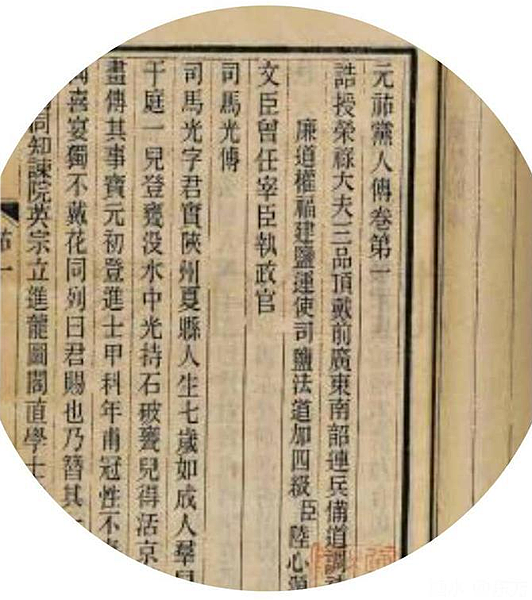 元祐黨人傳卷第一
誥授榮祿大夫三品頂戴前廣東南韶連兵備道調
廉道權福建鹽運使司鹽法道加四級臣陸心源
文臣曾任宰臣執政官
司馬光傳
司馬光字君實陝州夏縣人生七歲如成人羣
于庭一兒登甕沒水中光持石破甕兒得活京
畫傳其事寶元初登進士甲科年甫冠性不
喜宴獨不戴花同列曰君賜也乃簪其
同知諫院英宗立進龍圖閣直學士